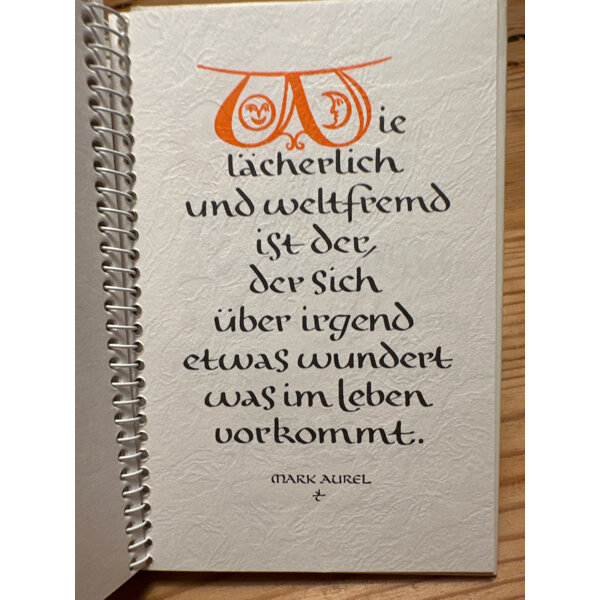 Wie
lächerlich
und weltfremd
ist der,
der sich
über irgend
etwas wundert
was im leben
vorkommt.
MARK AUREL